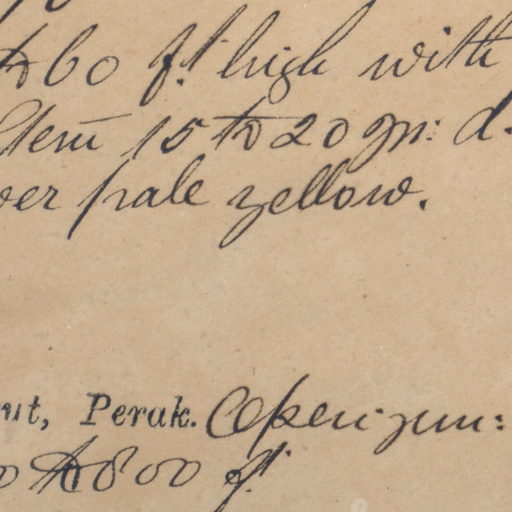 to 60 ft. high with
Stem 15 to 20 in: d.
wer pale yellow.
ut, Perak. Open jun:
0 to 800 ft.